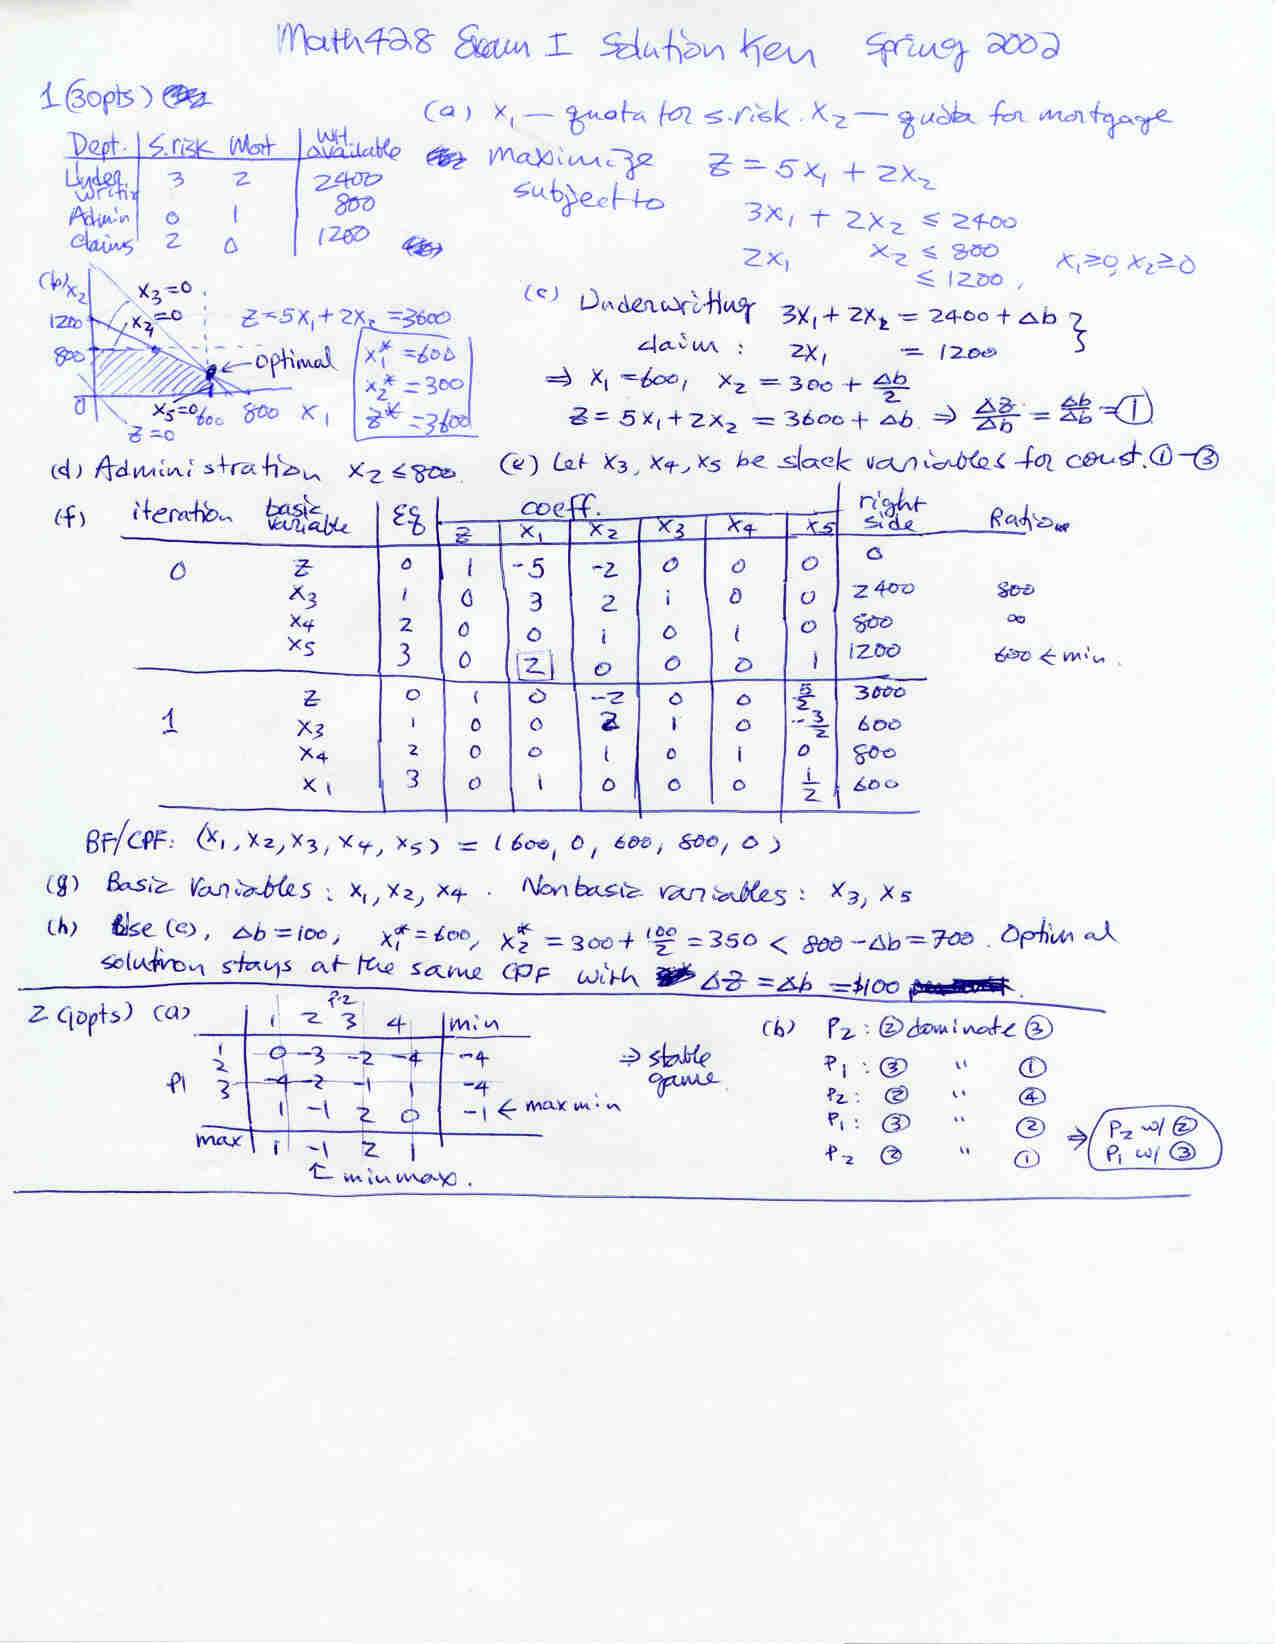 Math428 Exam I Solution Key Spring 2002
1 (30pts)
(a) x₁ — quota for s.risk. x₂ — quota for mortgage
Dept. | S.risk Mort | WH available
Under writin 3 2 2400
Admin 0 1 800
Claims 2 0 1200
maximize Z = 5x₁ + 2x₂
subject to
3x₁ + 2x₂ ≤ 2400
x₂ ≤ 800
2x₁ ≤ 1200, x₁≥0, x₂≥0
(b) x₂
x₃=0
1200
x₄=0
800
0
x₅=0 600 800 x₁
Z=0
Z=5x₁+2x₂=3600
← optimal
x₁* = 600
x₂* = 300
Z* = 3600
(c) Underwriting 3x₁ + 2x₂ = 2400 + Δb }
claim : 2x₁ = 1200
⇒ x₁ = 600, x₂ = 300 + Δb/2
Z = 5x₁ + 2x₂ = 3600 + Δb ⇒ ΔZ/Δb = Δb/Δb = ①
(d) Administration x₂ ≤ 800.
(e) Let x₃, x₄, x₅ be slack variables for const. ①–③
(f) iteration basic variable Eq coeff. right side Ratio
Z x₁ x₂ x₃ x₄ x₅
0 Z 0 1 -5 -2 0 0 0 0
x₃ 1 0 3 2 1 0 0 2400 800
x₄ 2 0 0 1 0 1 0 800 ∞
x₅ 3 0 2 0 0 0 1 1200 600 ← min.
Z 0 1 0 -2 0 0 5/2 3000
1 x₃ 1 0 0 2 1 0 -3/2 600
x₄ 2 0 0 1 0 1 0 800
x₁ 3 0 1 0 0 0 1/2 600
BF/CPF: (x₁, x₂, x₃, x₄, x₅) = (600, 0, 600, 800, 0)
(g) Basic Variables : x₁, x₂, x₄ . Nonbasic variables : x₃, x₅
(h) Use (c), Δb = 100, x₁* = 600, x₂* = 300 + 100/2 = 350 < 800 - Δb = 700. Optimal
solution stays at the same CPF with ΔZ = Δb = $100
2 (10pts) (a)
P2
1 2 3 4 min
1 0 -3 -2 -4 -4
P1 2 -4 -2 -1 1 -4
3 1 -1 2 0 -1 ← maxmin
max 1 -1 2 1
↑ minmax.
⇒ stable game.
(b) P₂ : ② dominate ③
P₁ : ③ " ①
P₂ : ② " ④
P₁ : ③ " ②
P₂ ② " ①
⇒ P₂ w/ ②
P₁ w/ ③